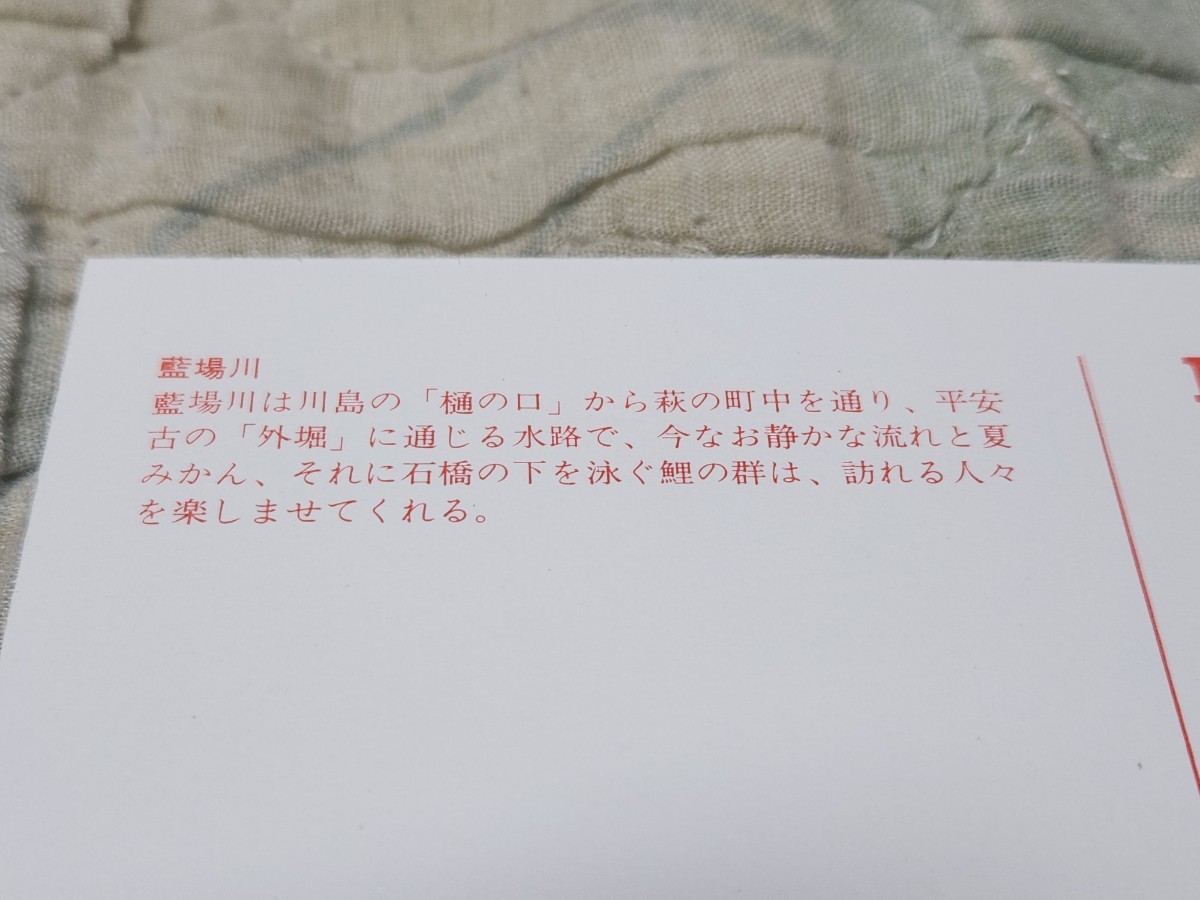 藍場川
藍場川は川島の「樋の口」から萩の町中を通り、平安
古の「外堀」に通じる水路で、今なお静かな流れと夏
みかん、それに石橋の下を泳ぐ鯉の群は、訪れる人々
を楽しませてくれる。